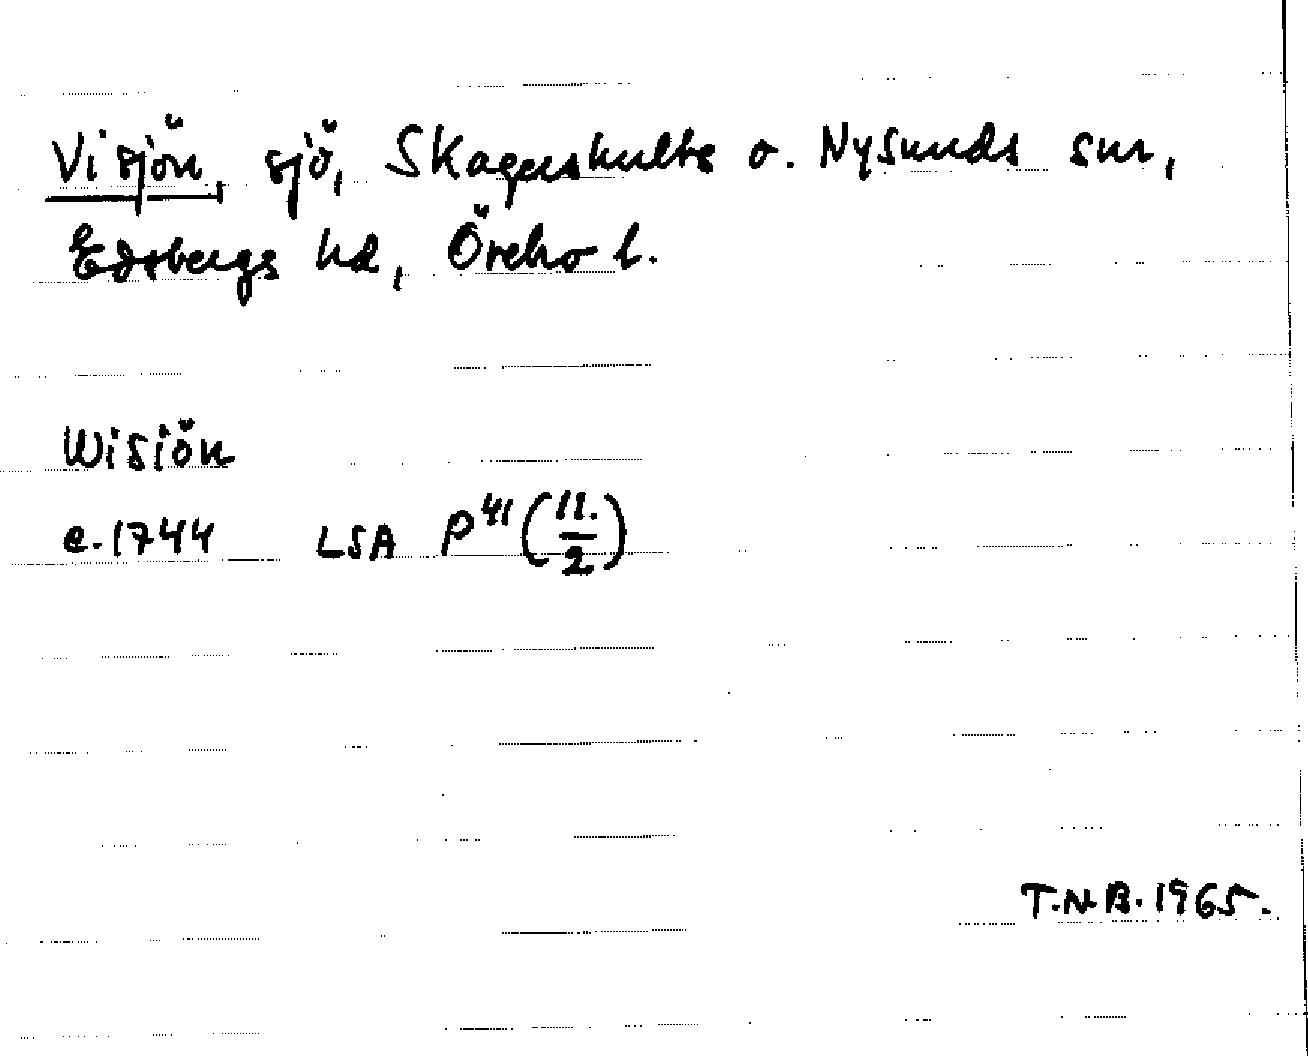 Visjön, sjö, Skagershults o. Nysunds snr,
Edsbergs hd, Örebro l.
Wisiön
c. 1744 LSA P⁴¹(11./2)
T.N.B. 1965.